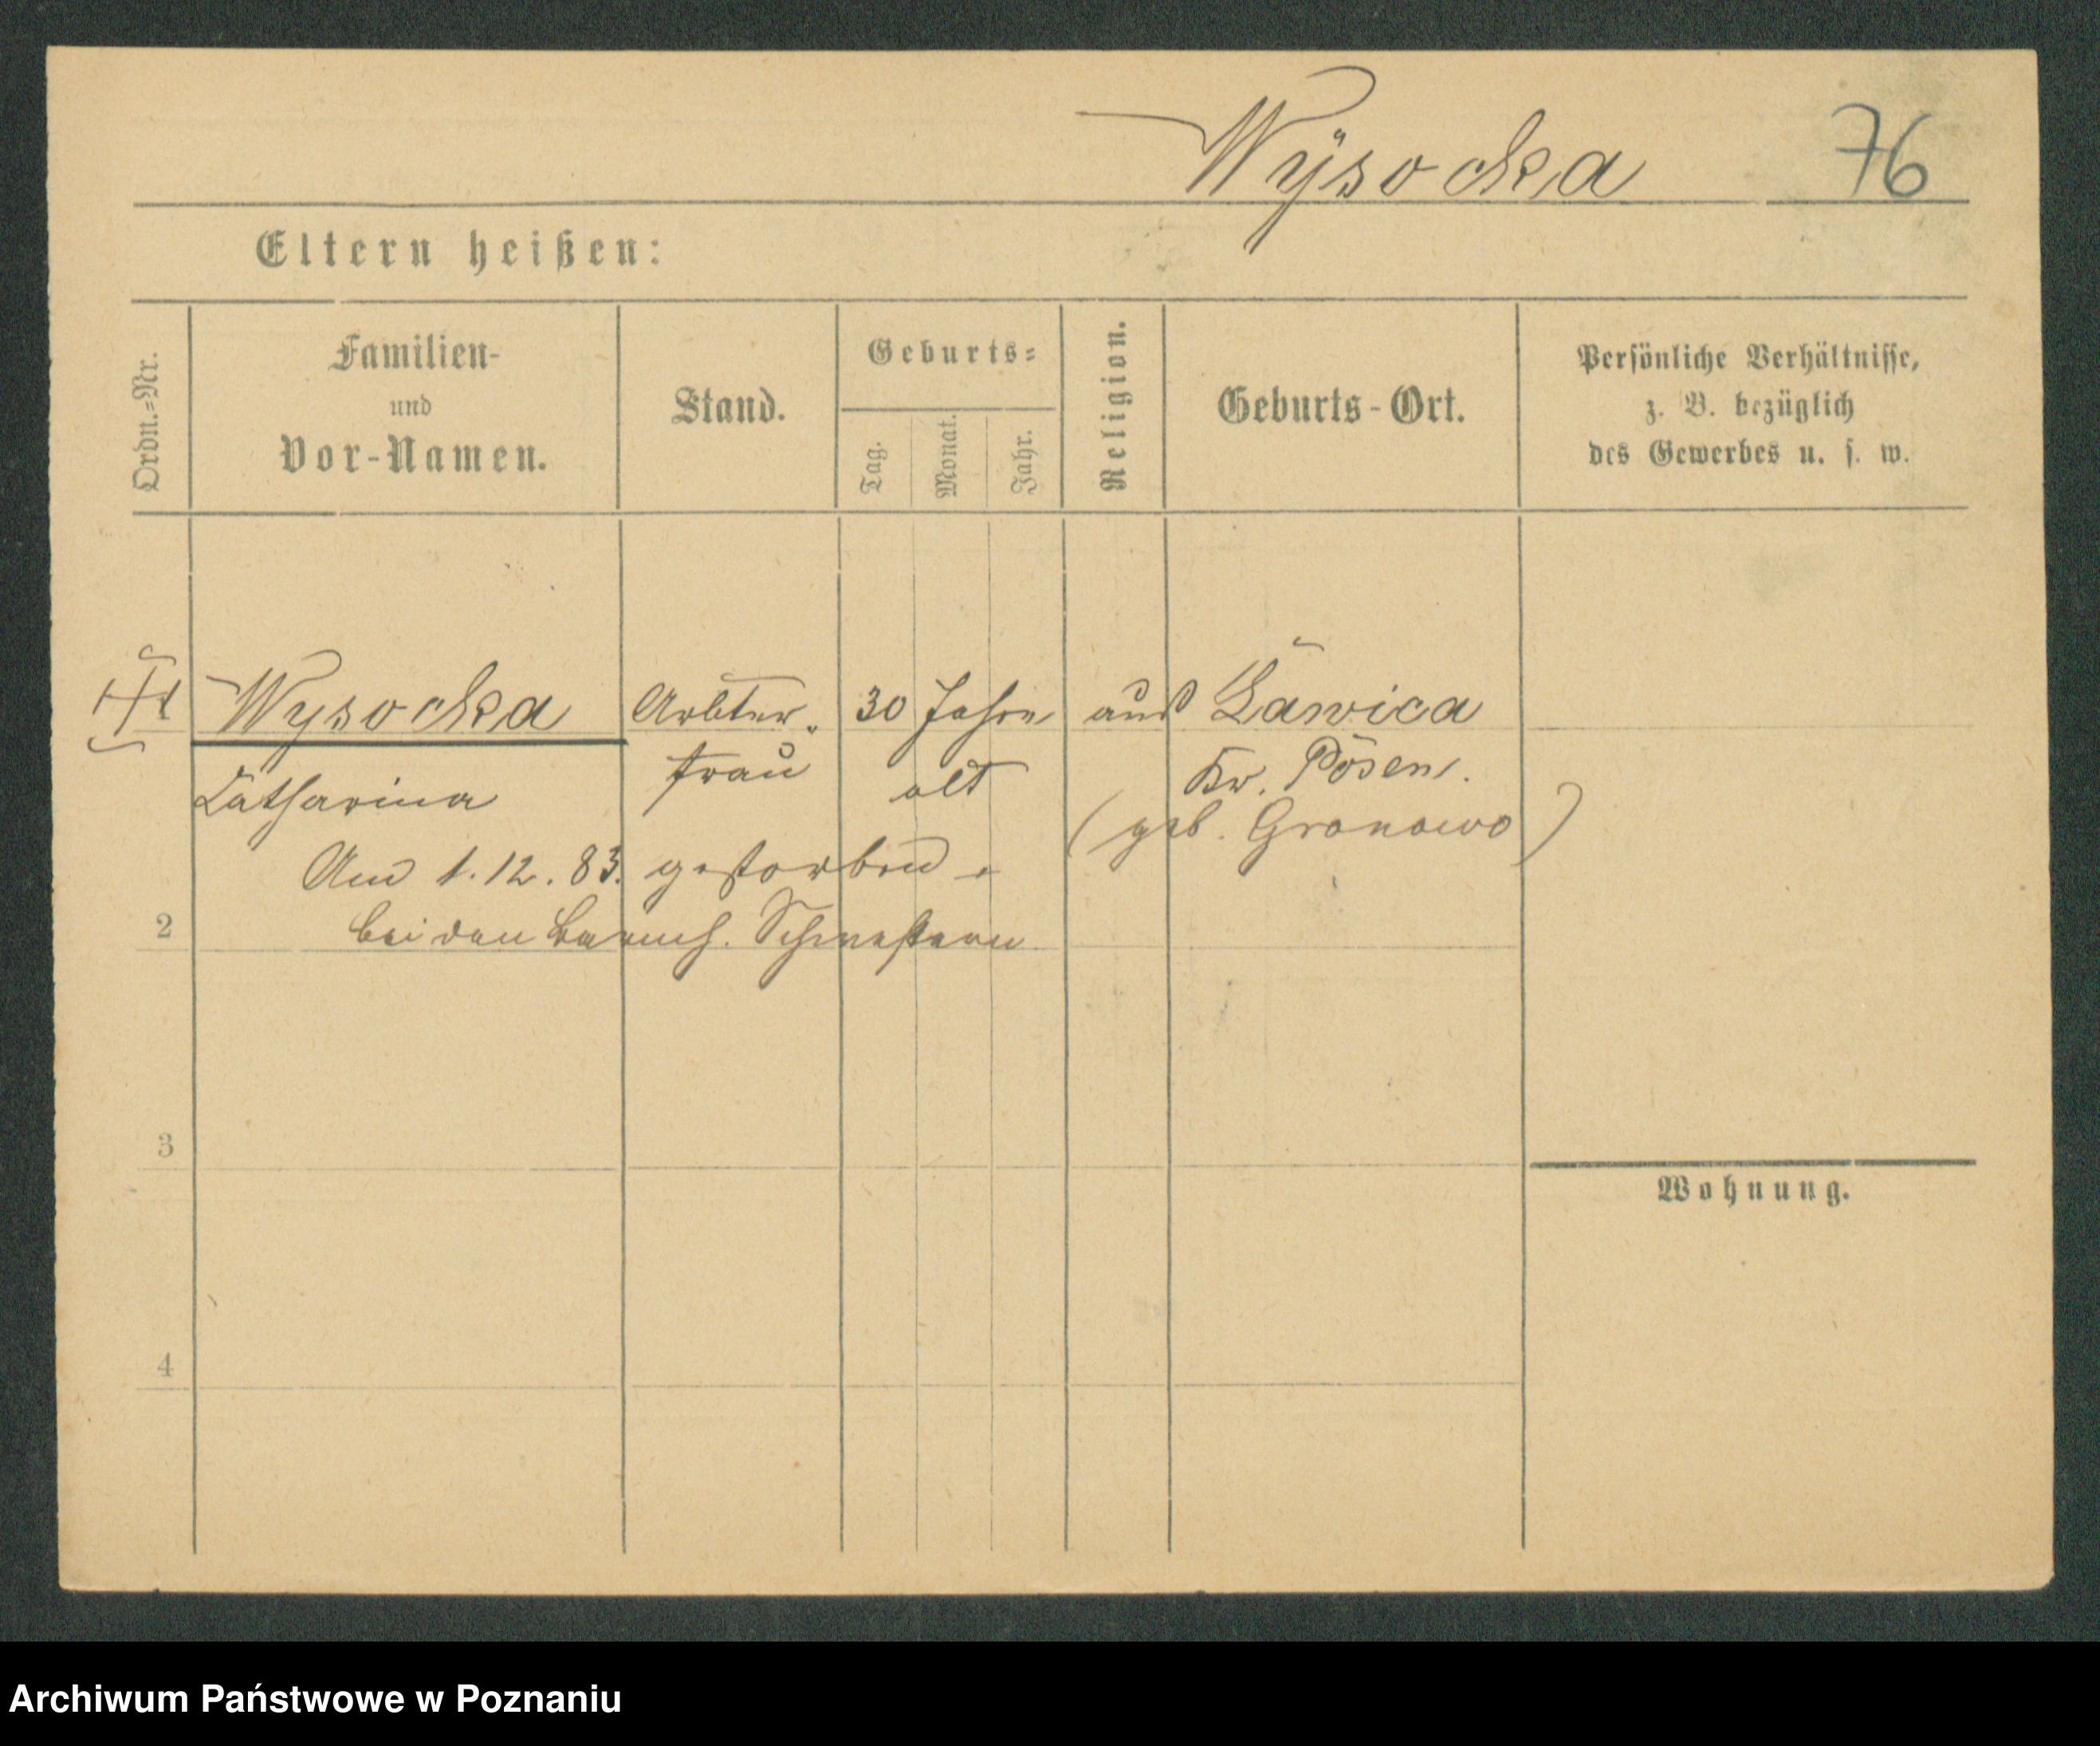 Wÿsocka 76
Eltern heißen:
Ordn.-Nr.
Familien-
und
Vor-Namen.
Stand.
Geburts-
Tag.
Monat.
Jahr.
Religion.
Geburts-Ort.
Persönliche Verhältnisse,
z. B. bezüglich
des Gewerbes u. s. w.
Wysocka Arbter- 30 Jahre aus Ławica
Catharina frau alt Kr. Posen.
(geb. Granowo)
Am 1.12.83. gestorben.
2 bei den barmh. Schwestern
3
Wohnung.
4
Archiwum Państwowe w Poznaniu